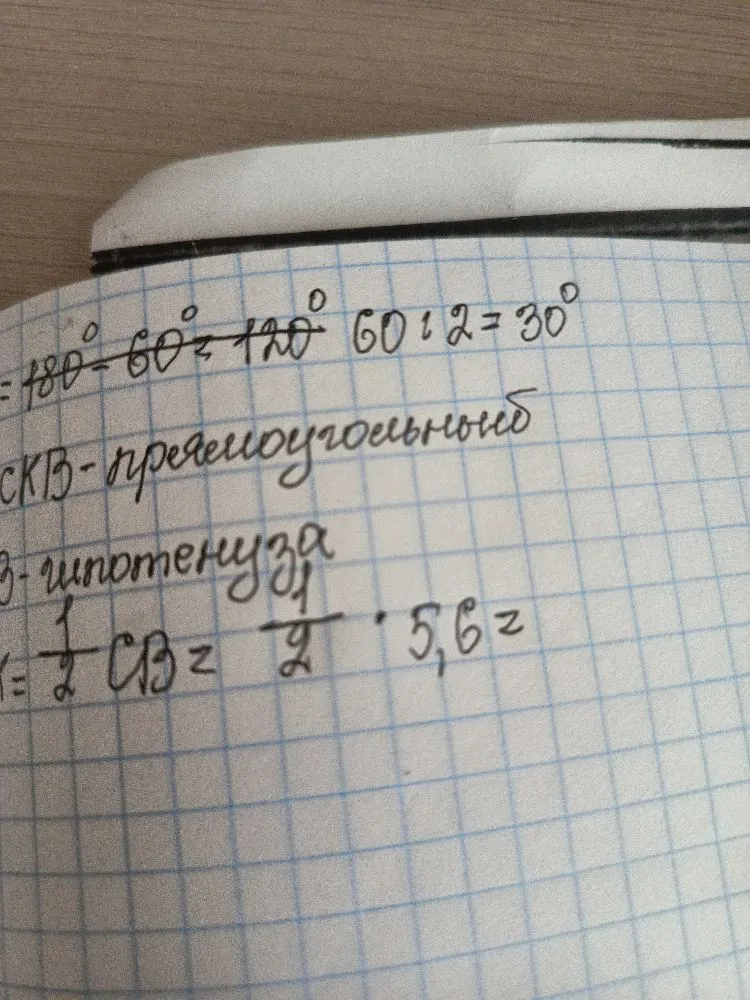 = 180° - 60° = 120° 60 : 2 = 30°
СКВ - прямоугольный
В - гипотенуза
К = 1/2 СВ = 1/2 · 5,6 =